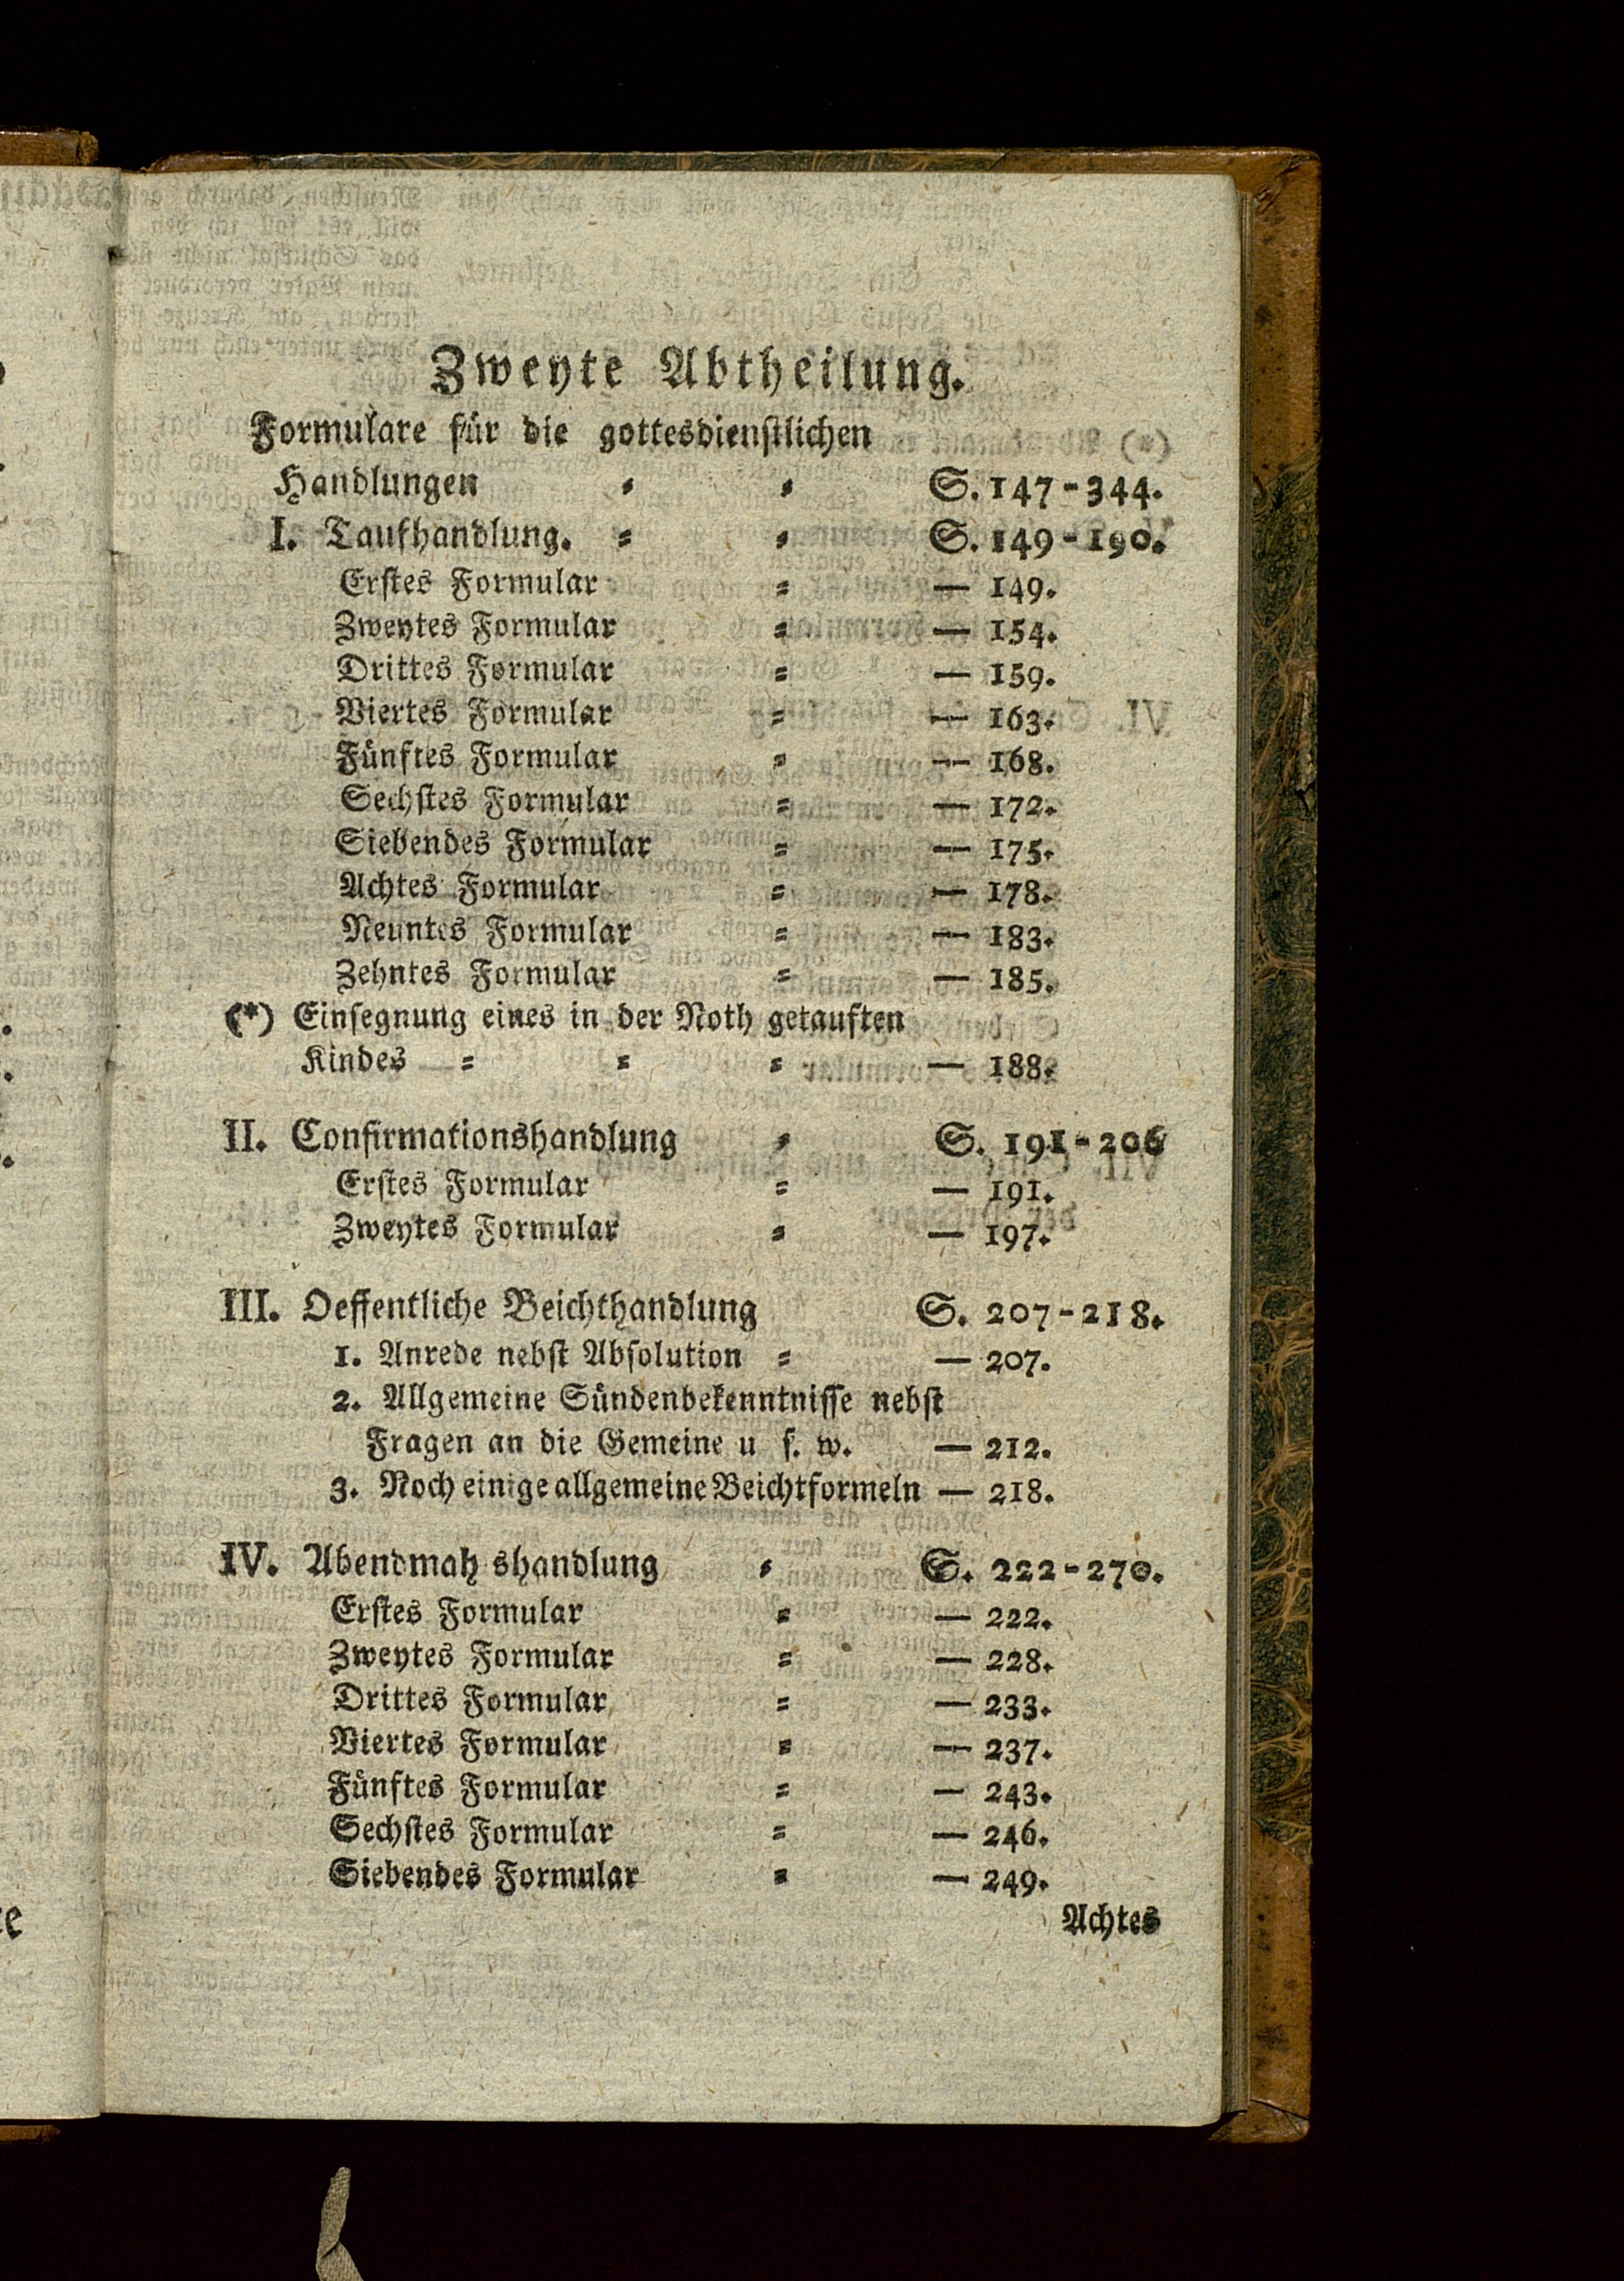 Zweyte Abtheilung.
Formulare für die gottesdienstlichen
Handlungen = = S. 147-344.
I. Taufhandlung. = = S. 149-190.
Erstes Formular = — 149.
Zweytes Formular = — 154.
Drittes Formular = — 159.
Viertes Formular = — 163.
Fünftes Formular = — 168.
Sechstes Formular = — 172.
Siebendes Formular = — 175.
Achtes Formular = — 178.
Neuntes Formular = — 183.
Zehntes Formular = — 185.
(*) Einsegnung eines in der Noth getauften
Kindes = = = — 188.
II. Confirmationshandlung = S. 191-206
Erstes Formular = — 191.
Zweytes Formular = — 197.
III. Oeffentliche Beichthandlung S. 207-218.
1. Anrede nebst Absolution = — 207.
2. Allgemeine Sündenbekenntnisse nebst
Fragen an die Gemeine u s. w. — 212.
3. Noch einige allgemeine Beichtformeln — 218.
IV. Abendmah shandlung = S. 222-270.
Erstes Formular = — 222.
Zweytes Formular = — 228.
Drittes Formular = — 233.
Viertes Formular = — 237.
Fünftes Formular = — 243.
Sechstes Formular = — 246.
Siebendes Formular = — 249.
Achtes